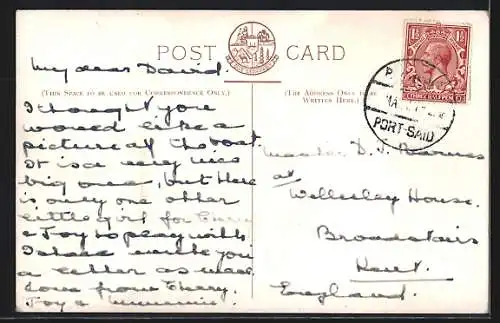 POST CARD
(THIS SPACE TO BE USED FOR CORRESPONDENCE ONLY.)
(THE ADDRESS ONLY TO BE WRITTEN HERE.)
My dear David
I thought you
would like a
picture of the boat.
It is a very nice
big one, but there
is only one other
little girl for Cherry
& Joy to play with.
I shall write you
a letter as well
love from Cherry,
Joy & Mummie.
PORT-SAID
Master D. J. Barnes
at
Wellesley House.
Broadstairs
Kent.
England.